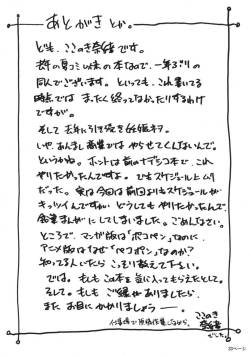 あとがき とか。
ども、ここのき奈緒です。
去年の夏コミ以来の本なので、一年ぶりの
同人でございます。といっても、これ書いてる
時点では まったく終ってなかったりするわけ
ですが。
そして 去年に引き続き妊婦ネタ。
いや、あんまし商業では やらせてくんないんで。
というかね。ホントは前のナデシコ本で、これ
やりたかったんですよ。でもスケジュール上ムリ
だった。実は今回は前回よりもスケジュールが
キッツイんですがい どうしてもやりたかったんで、
全業まんがにしてしまいました。ごめんなさい。
ところで、マンガ版は「ポコペン」なのに
アニメ版はなぜ「ペコポン」なのか?
知ってる人いたら こっそり教えて下さい。
では。もしこの本を気に入ってもらえたとして。
そして。もし ご縁がありましたら、
また お目にかかりましょう―。
ここのき
奈緒
でした。
仕事場で原稿作業しながら。
ページ